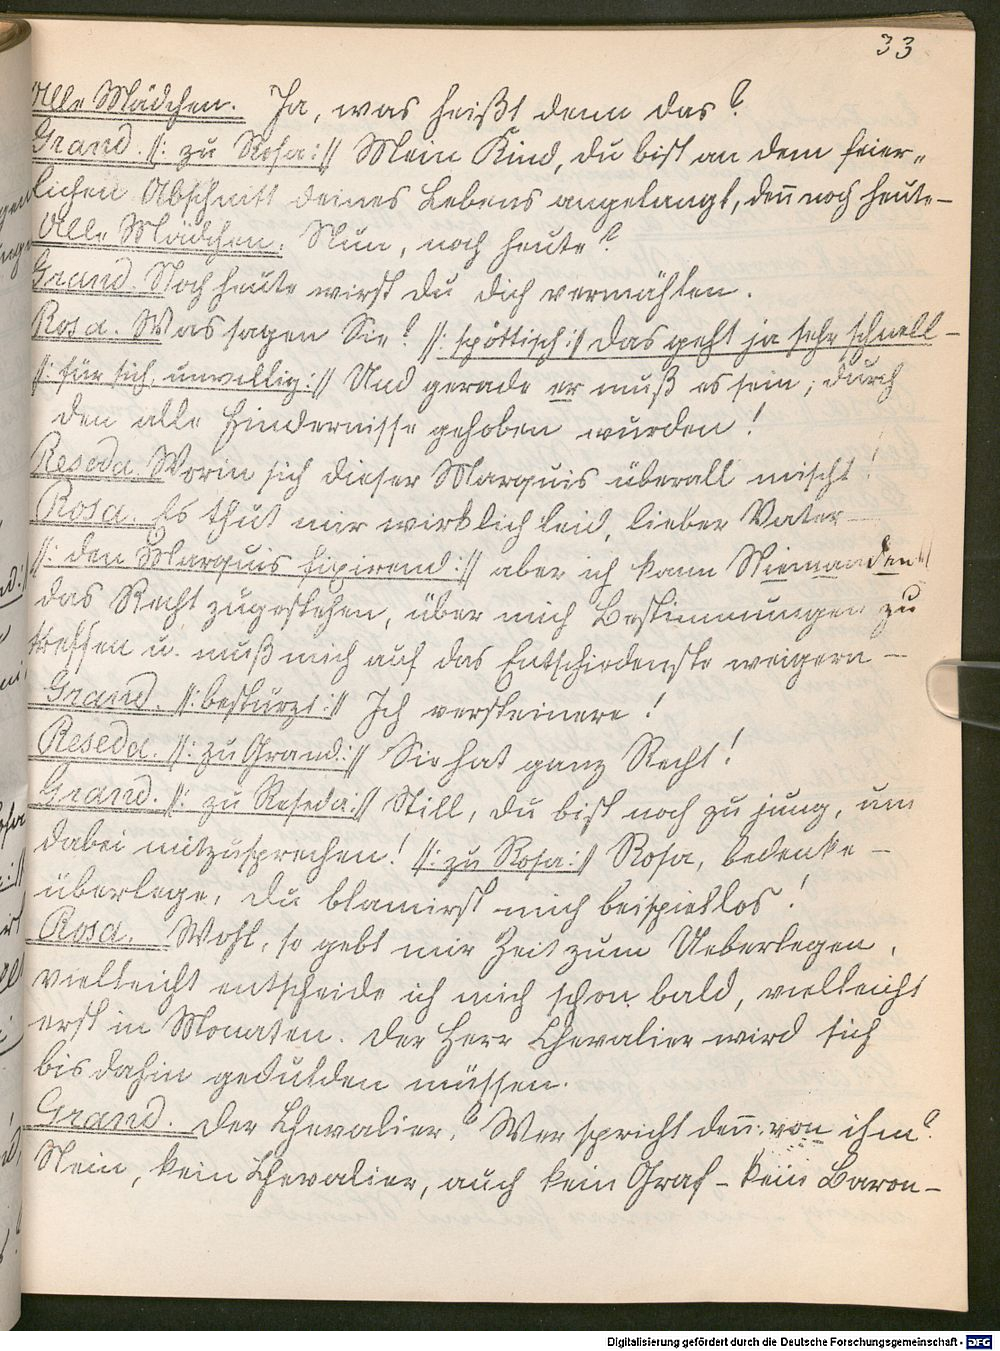 33
Alle Mädchen. Ja, was heißt denn das?
Grand. //: zu Rosa :// Mein Kind, du bist an dem feier-
lichen Abschnitt deines Lebens angelangt, deñ noch heute –
Alle Mädchen. Nun, noch heute?
Grand. Noch heute wirst du dich vermählen.
Rosa. Was sagen Sie? //: spöttisch :// das geht ja sehr schnell –
//: für sich, unwillig :// Und gerade er muß es sein, durch
den alle Hindernisse gehoben wurden!
Reseda. Worin sich dieser Marquis überall mischt!
Rosa. Es thut mir wirklich leid, lieber Vater –
//: den Marquis fixirend :// aber ich kann Niemanden
das Recht zugestehen, über mich Bestimmungen zu
treffen u. muß mich auf das Entschiedenste weigern –
Grand. //: bestürzt :// Ich versteinere!
Reseda. //: zu Grand :// Sie hat ganz Recht!
Grand. //: zu Reseda :// Still, du bist noch zu jung, um
dabei mitzusprechen! //: zu Rosa :// Rosa, bedenke –
überlege, du blamirst mich beispiellos!
Rosa. Wohl, so gebt mir Zeit zum Ueberlegen,
vielleicht entscheide ich mich schon bald, vielleicht
erst in Monaten. Der Herr Chevalier wird sich
bis dahin gedulden müssen.
Grand. Der Chevalier? Wer spricht deñ von ihm?
Nein, kein Chevalier, auch kein Graf – kein Baron –
Digitalisierung gefördert durch die Deutsche Forschungsgemeinschaft - DFG